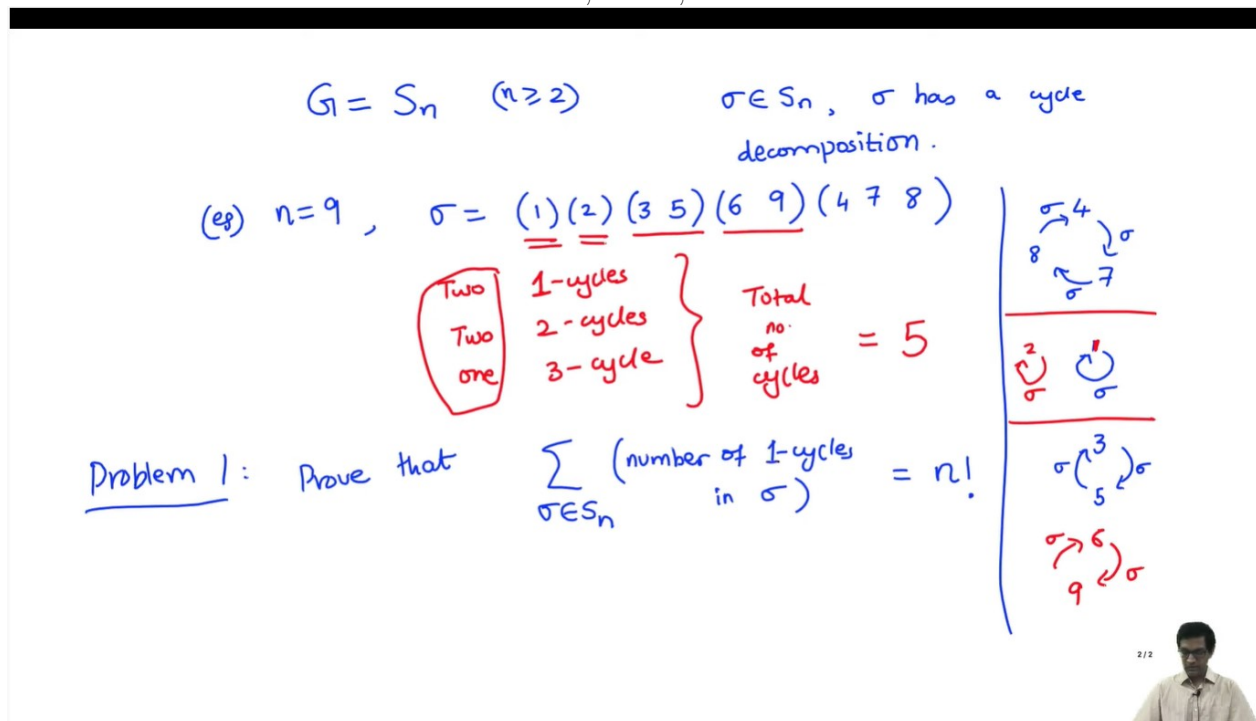 G = Sₙ (n ≥ 2) σ ∈ Sₙ, σ has a cycle
decomposition.
(eg) n=9, σ = (1)(2)(3 5)(6 9)(4 7 8)
Two 1-cycles
Two 2-cycles
one 3-cycle
Total
no.
of
cycles
= 5
Problem 1: Prove that ∑ σ∈Sₙ (number of 1-cycles
in σ) = n!
σ 4
σ
8
7
σ
2
σ
1
σ
3
σ σ
5
σ 6
σ
9
2/2